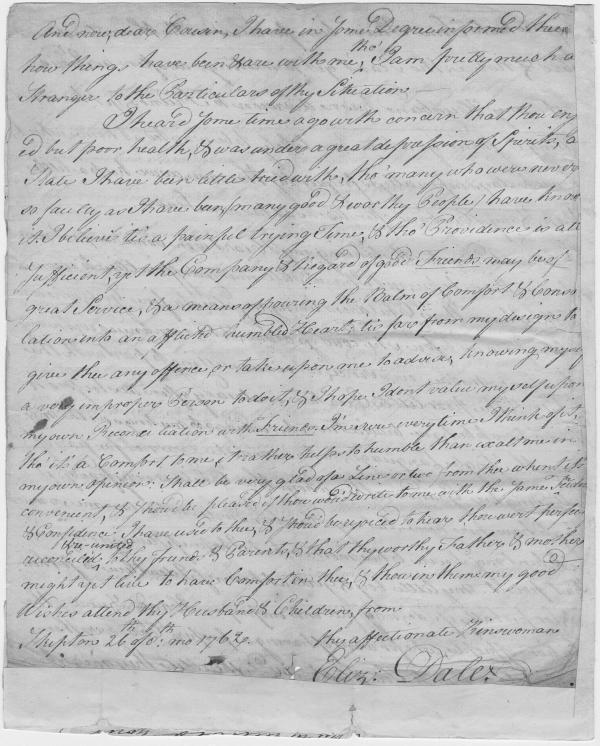 And now, dear Cousin, I have in some Degree informed thee
how things have been & are with me, tho' I am pretty much a
Stranger to the Particulars of thy Situation
I heard some time ago with concern that thou enj
ed but poor health, & was under a great depression of Spirits, a
State I have been little tried with, tho' many who were never
so faulty as I have been, (many good & worthy People) have know
it. I believe tis a painful trying Time, & tho' Providence is all
sufficient, yet the Company & regard of good Friends may be of
great Service, & a means of pouring the Balm of Comfort & Conso
lation into an afflicted humbled Heart; tis far from my design to
give thee any offence, or take upon me to advise, knowing myself
a very improper Person to do it, & I hope I dont value myself upon
my own Reconciliation with Friends. I'm sure every time I think of it,
tho' it's a Comfort to me, rather helps to humble than exalt me in
my own opinion; I shall be very glad of a Line or two from thee when its
convenient, & should be pleased if thou would write to me with the same
& Confidence, I have used to thee, & should be rejoiced to hear thou wert perfec
reconciled & re-united to thy friends & Parents, & that thy worthy Father & mother
might yet live to have Comfort in thee, & thou in them, my good
Wishes attend thy Husband & Children, from
Skipton 26th of th mo 1762.
thy affectionate Kinswoman
Eliz: Dale